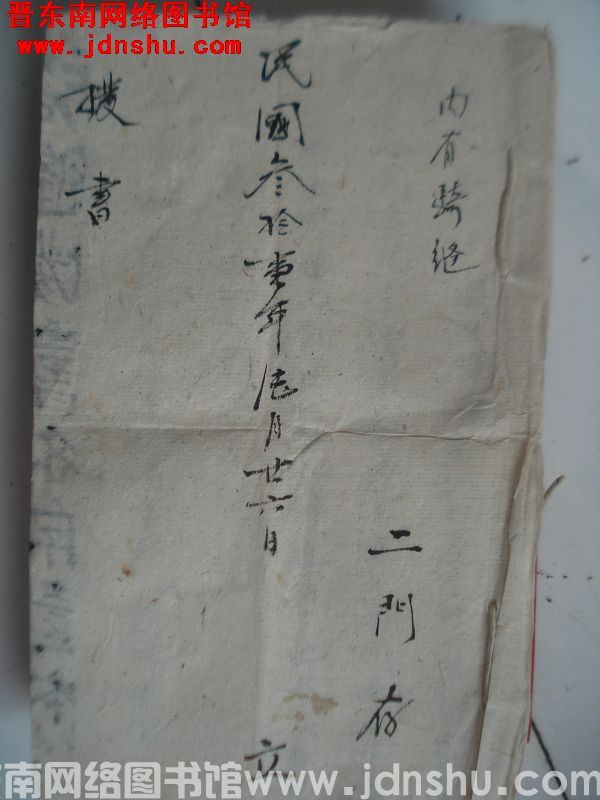 晋东南网络图书馆
www.jdnshu.com
内有骑缝
二門存
民國叁拾壹年陆月廿六日 立
書
东南网络图书馆www.jdnshu.com